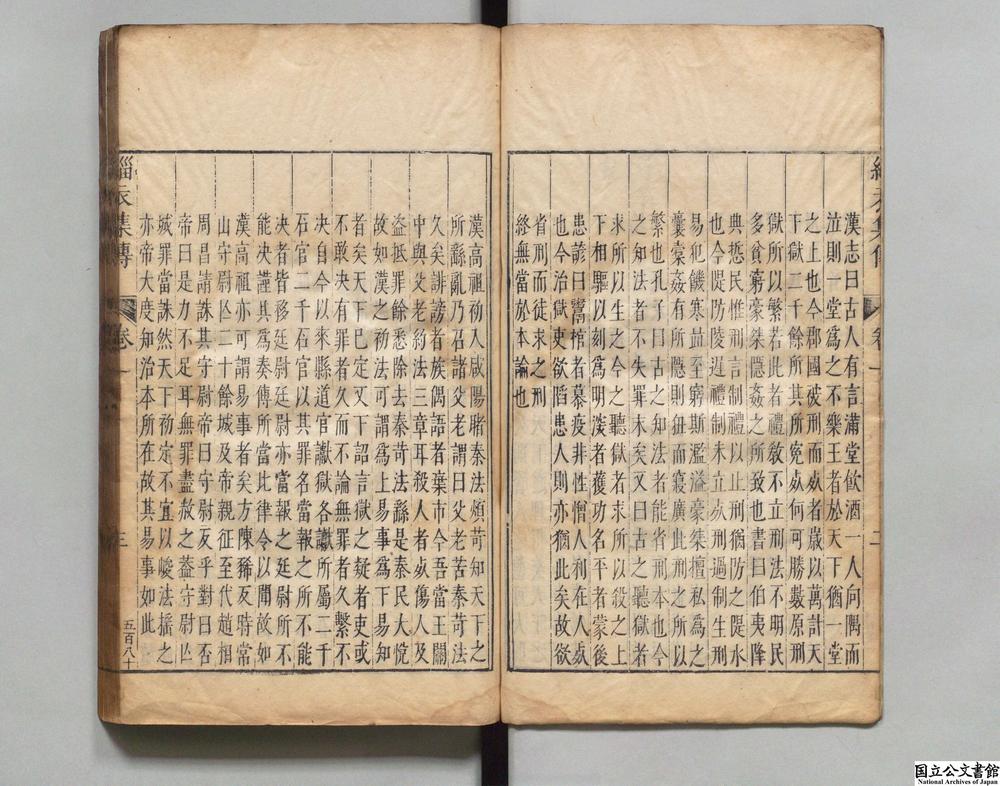 漢志曰古人有言滿堂飲酒一人向隅而
泣則一堂爲之不樂王者於天下猶一堂
之上也今郡國被刑而死者歲以萬計天
下獄二千餘所其所寃死何可勝數原刑
獄所以繁若此者禮敎不立刑法不明民
多貧窮豪桀隱姦之所致也書曰伯夷降
典悊民惟刑言制禮以止刑猶防之隄水
也今隄防陵遲禮制未立死刑過制生刑
易犯饑寒並至窮斯濫溢豪桀擅私爲之
囊橐姦有所隱則狃而寖廣此刑之所以
繁也孔子曰古之知法者能省刑本也今
之知法者不失罪末矣又曰古之聽獄者
求所以生之今之聽獄者求所以殺之上
下相驅以刻爲明深者獲功名平者蒙後
患諺曰鬻棺者慕疫非性憎人利在人死
也今治獄吏欲陷患人則亦猶此矣故欲
省刑而徒求之刑
終無當於本論也
緇衣集傳 卷一 三
漢高祖初入咸陽睹秦法煩苛知天下之
所繇亂乃召諸父老謂曰父老苦秦苛法
久矣誹謗者族偶語者棄市今吾當王關
中與父老約法三章耳殺人者死傷人及
盜抵罪餘悉除去秦苛法繇是秦民大悅
故如漢之初法可謂爲上易事爲下易知
者矣天下已定又下詔言獄之疑者吏或
不敢决有罪者久而不論無罪者久繫不
决自今以來縣道官讞獄各讞所屬二千
石官二千石官以其罪名當報之所不能
决者皆移廷尉廷尉亦當報之廷尉所不
能决謹具爲奏傳所當比律令以聞故如
漢高祖亦可謂易事者矣方陳豨反時常
山守尉亾二十餘城及帝親征至代趙相
周昌請誅其守尉帝曰守尉反乎對曰否
帝曰是力不足耳無罪盡赦之葢守尉亾
城罪當誅然天下初定不宜以峻法搖之
亦帝大度知治本所在故其易事如此
五百八十
国立公文書館
National Archives of Japan